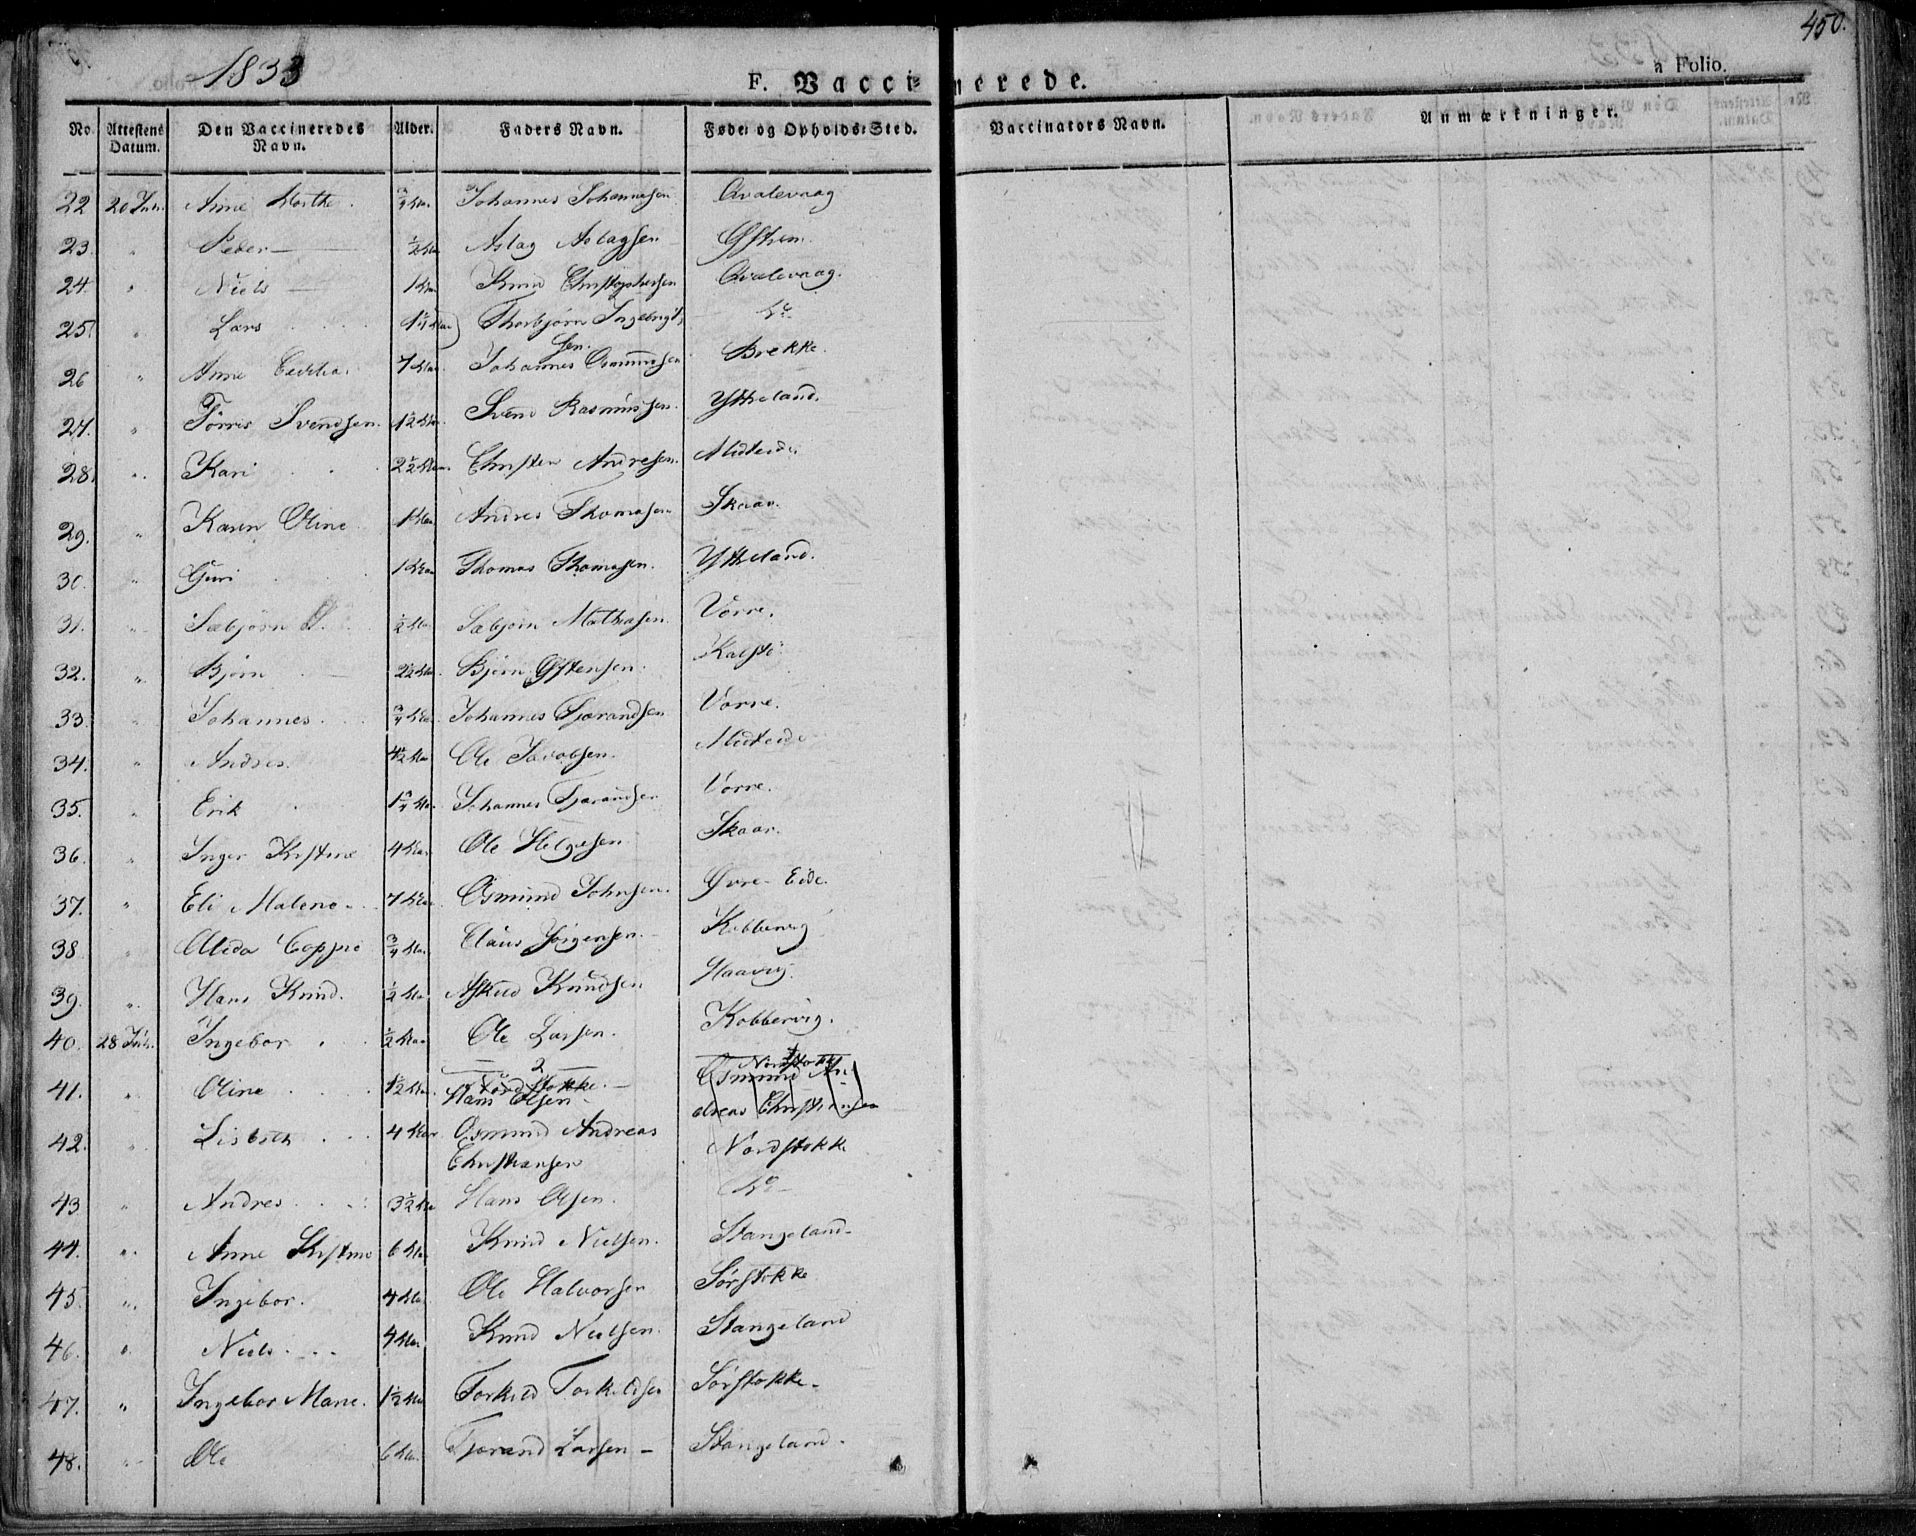 450.
1833
F. Vaccinerede.
a Folio.
No. Attestens Datum. Den Vaccineredes Navn. Alder. Faders Navn. Føde- og Opholds-Sted. Vaccinators Navn. Anmærkninger.
22 20 Anne Marthe. 3/4 Johannes Johannesen Qvalevaag
23. " Peder 1/2 Aslag Aslagsen
24. " Niels 1 Knud Christophersen Qvalevaag.
25. " Lars Thorbjørn Ingebrigtsen do
26 " Anne Cecilia 7 Johannes Osmundsen Brekke.
27. " Tørris Svendsen. 1 1/2 Svend Rasmussen. Ytteland.
28. " Kari 2 1/2 Christen Andresen. Midteide
29. " Karen Oline 1 Andres Thomasen Skaar.
30. " Guri 1 Thomas Thomasen. Ytteland.
31. " Sæbjørn 1/2 Sæbjørn Mathiasen. Vorre.
32. " Bjørn 2 1/2 Bjørn Østensen. Kalstø
33. " Johannes 3/4 Johannes Tjørandsen Vorre.
34. " Andres. 4 1/2 Ole Jacobsen. Midteide
35. " Erik Johannes Tjørandsen Vorre.
36. " Inger Kistine 4 Ole Helgesen Skaar.
37. " Eli Malene 7 Osmund Johnsen. Øvre-Eide.
38 " Alida 3/4 Claus Jørgensen. Kobbervig
39. " Hans Knud. 1/2 Askild Knudsen Haavig.
40. 28 Ingebor 1/2 Ole Larsen. Kobbervig.
41. " Oline 1/2 Hans Olsen Nordstokke
Osmund Andreas Christiansen
42. " Lisbeth 4 Osmund Andreas Christiansen Nordstokke
43 " Andres 3 1/2 Hans Olsen. do
44. " Anne Kistine 6 Knud Nielsen. Stangeland
45. " Ingebor. 4 Ole Halvorsen Sørstokke
46. " Niels 4 Knud Nielsen. Stangeland
47. " Ingebor Marie. 1 1/2 Torkild Torkildsen Sørstokke
48. " Ole 6 Tjørand Larsen Stangeland